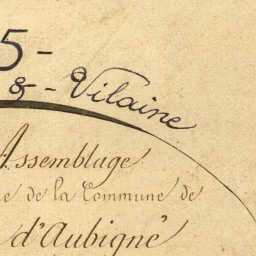 5-
& - Vilaine
Assemblage
de la Commune de
d'Aubigné